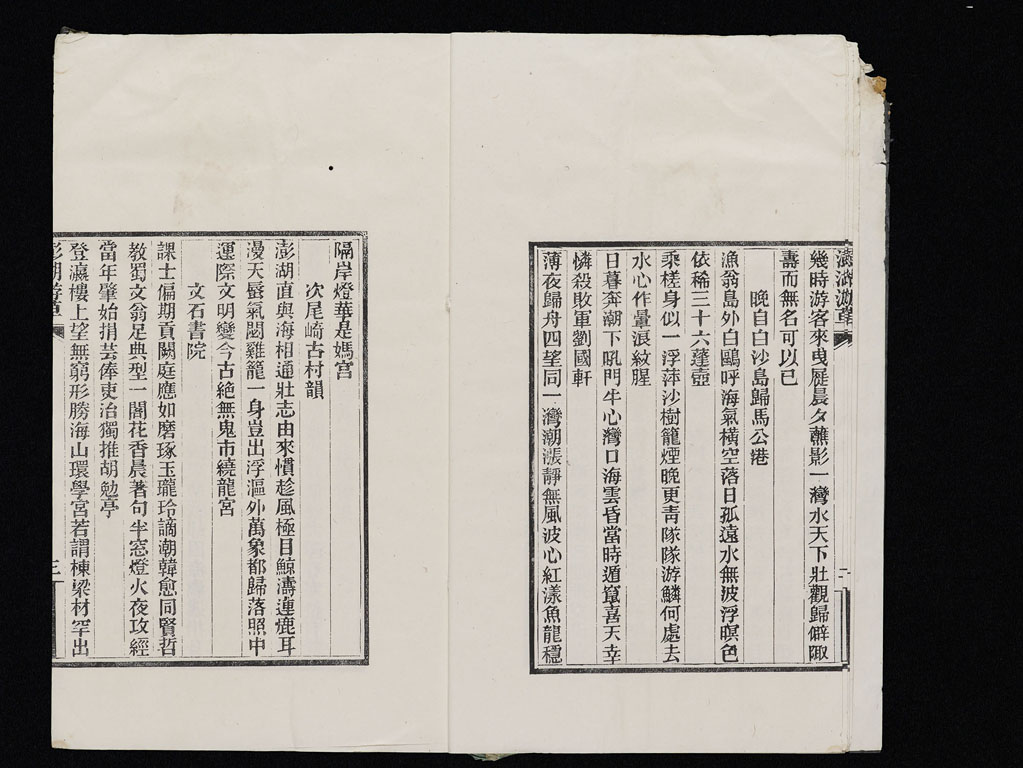 澎湖游草
二
幾時游客來曳屣晨夕蘸影一灣水天下壯觀歸僻陬
壽而無名可以已
晚自白沙島歸馬公港
漁翁島外白鷗呼海氣橫空落日孤遠水無波浮暝色
依稀三十六蓬壺
乘槎身似一浮萍沙樹籠煙晚更靑隊隊游鱗何處去
水心作暈浪紋腥
日暮奔潮下吼門牛心灣口海雲昏當時遁竄喜天幸
憐殺敗軍劉國軒
薄夜歸舟四望同一灣潮漲靜無風波心紅漾魚龍穩
隔岸燈華是媽宮
次尾崎古村韻
澎湖直與海相通壯志由來慣趁風極目鯨濤連鹿耳
漫天蜃氣閟雞籠一身豈出浮漚外萬象都歸落照中
運際文明變今古絕無鬼市繞龍宮
文石書院
課士偏期貢闕庭應如磨琢玉瓏玲謫潮韓愈同賢哲
敎蜀文翁足典型一閣花香晨著句半窓燈火夜攻經
當年肇始捐芸俸吏治獨推胡勉亭
登瀛樓上望無窮形勝海山環學宮若謂棟梁材罕出
澎湖游草
三